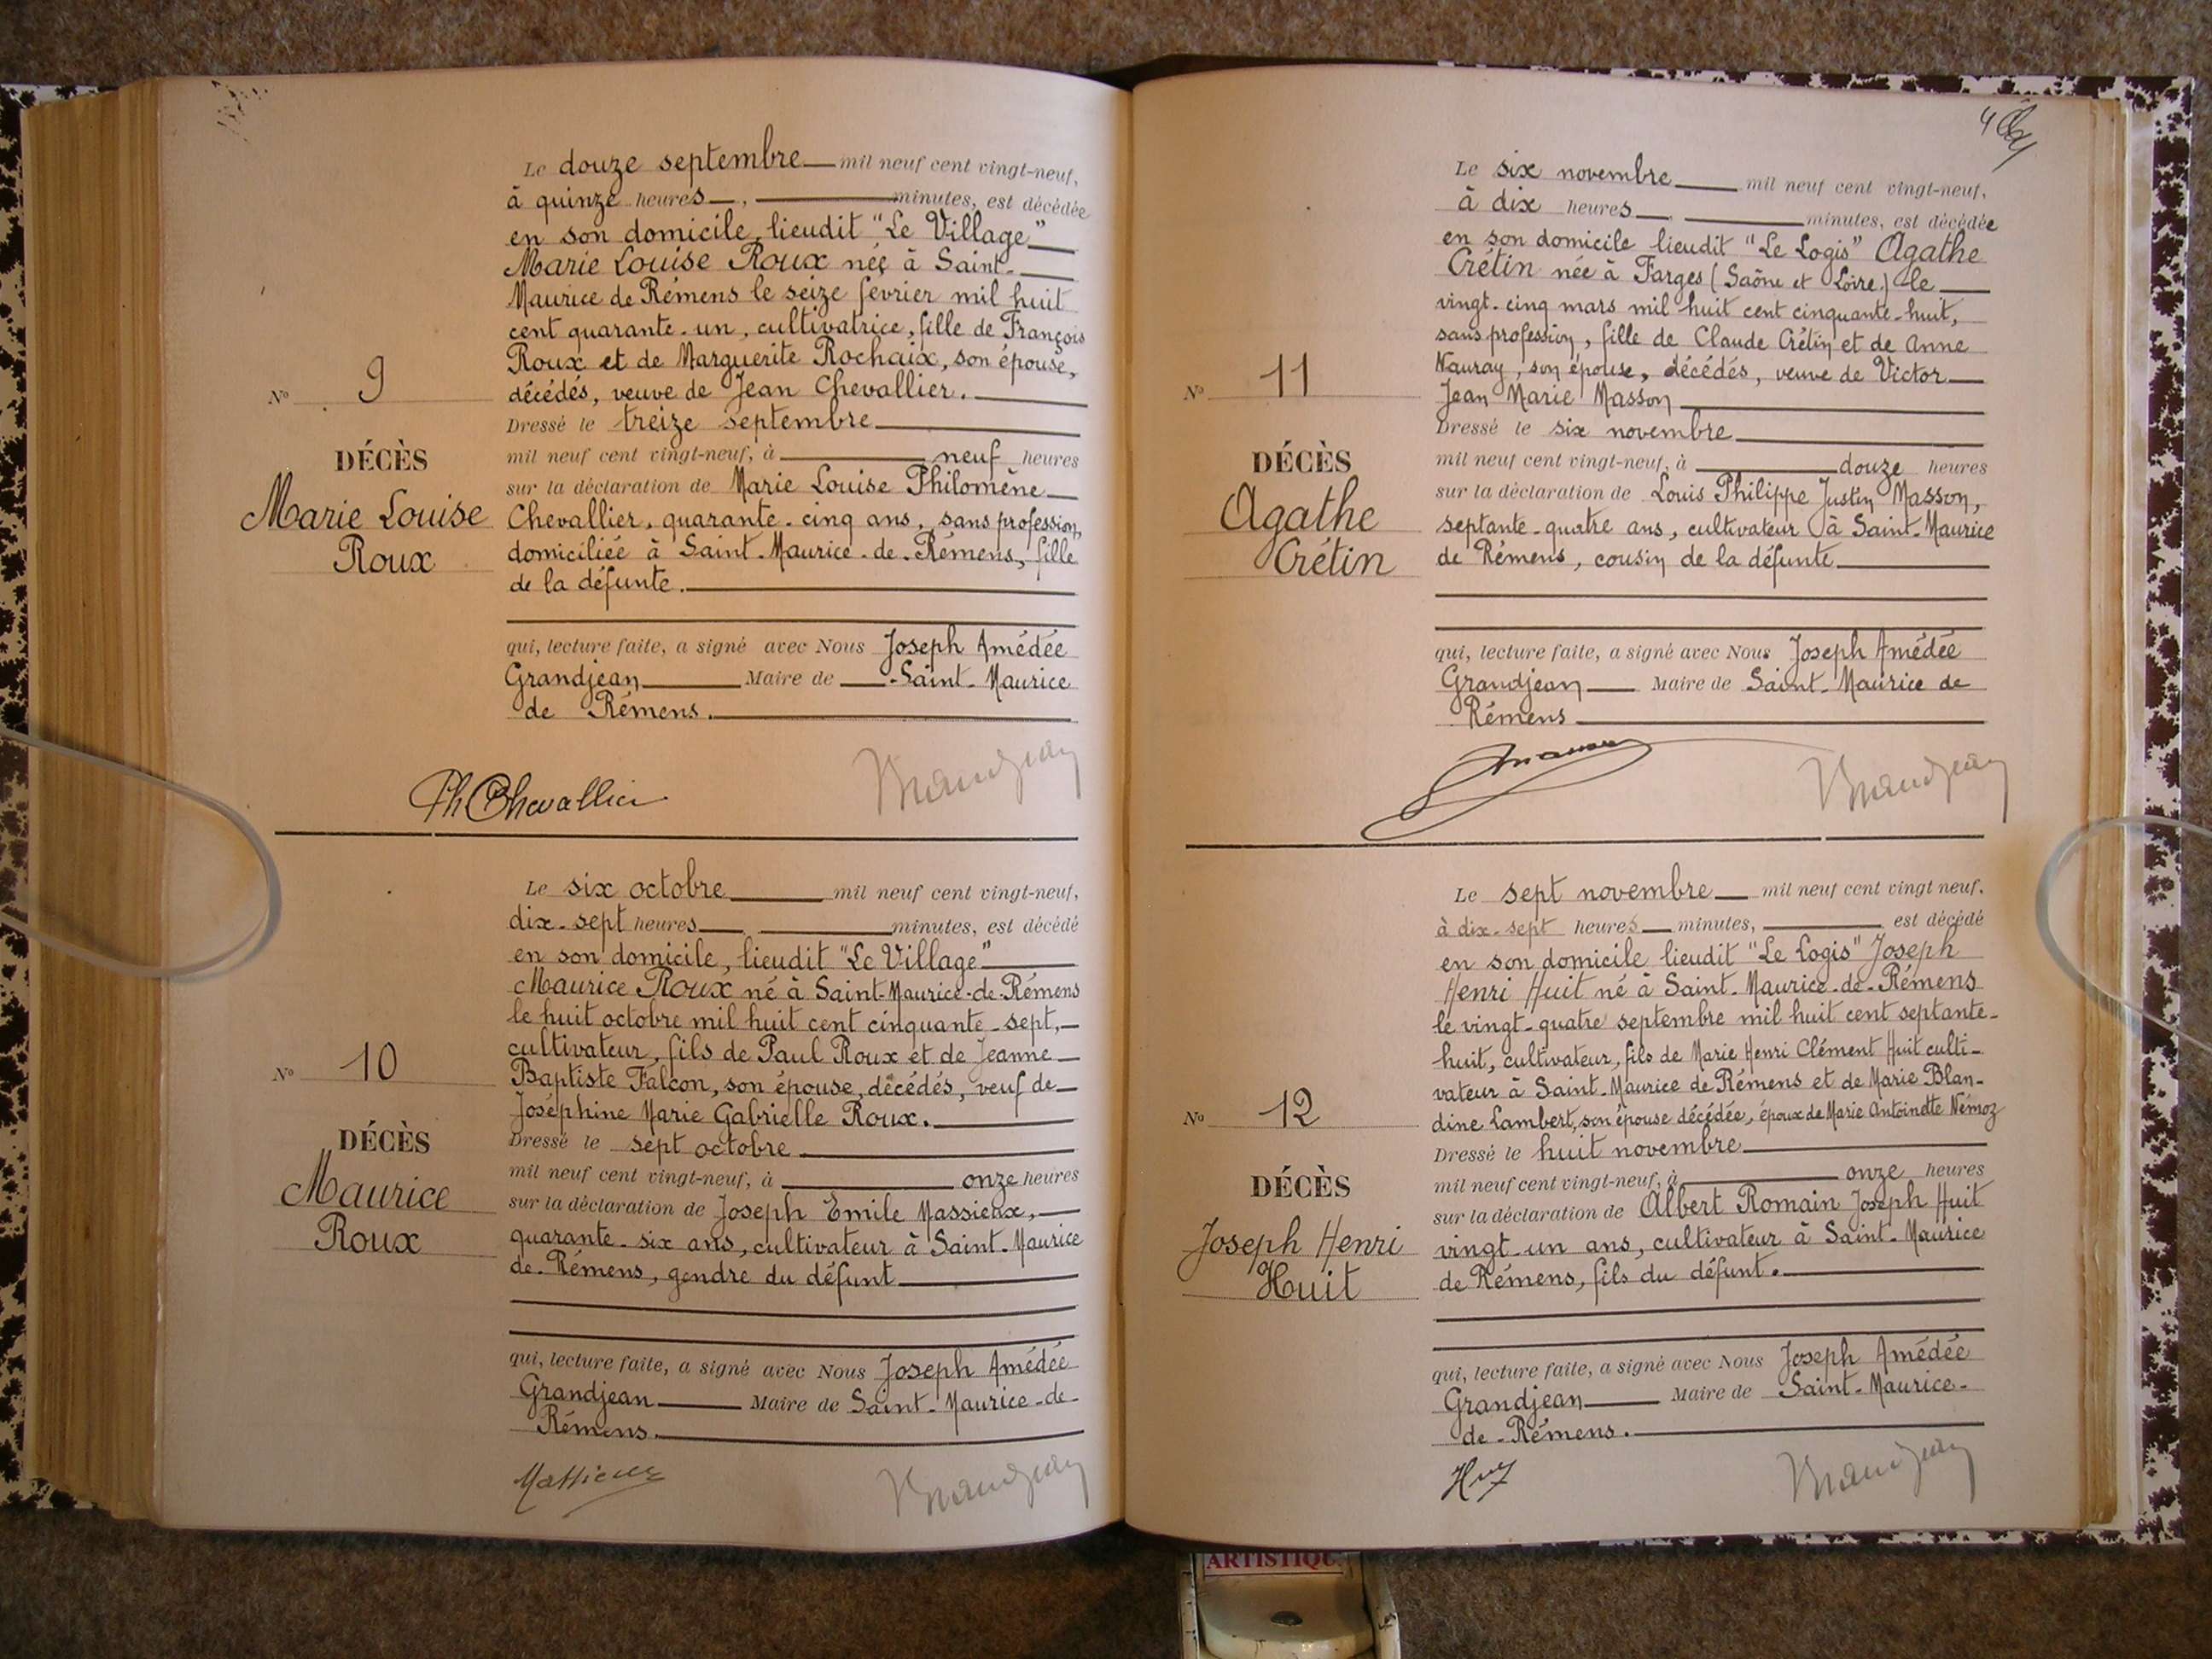 Le douze septembre mil neuf cent vingt-neuf,
à quinze heures, minutes, est décédée
en son domicile, lieudit "Le Village"
Marie Louise Roux née à Saint-
Maurice de Rémens le seize février mil huit
cent quarante-un, cultivatrice, fille de François
Roux et de Marguerite Rochaix, son épouse,
décédés, veuve de Jean Chevallier.
Nº 9
Dressé le treize septembre
DÉCÈS
mil neuf cent vingt-neuf, à neuf heures
sur la déclaration de Marie Louise Philomène
Marie Louise
Roux
Chevallier, quarante-cinq ans, sans profession,
domiciliée à Saint-Maurice-de-Rémens, fille
de la défunte.
qui, lecture faite, a signé avec Nous Joseph Amédée
Grandjean Maire de Saint-Maurice
de Rémens.
Ph Chevallier Grandjean
Le six octobre mil neuf cent vingt-neuf,
dix-sept heures minutes, est décédé
en son domicile, lieudit "Le Village"
Maurice Roux né à Saint-Maurice-de-Rémens
le huit octobre mil huit cent cinquante-sept,
cultivateur, fils de Paul Roux et de Jeanne
Baptiste Falcon, son épouse, décédés, veuf de
Joséphine Marie Gabrielle Roux.
Nº 10
Dressé le sept octobre
DÉCÈS
mil neuf cent vingt-neuf, à onze heures
sur la déclaration de Joseph Emile Massieux,
Maurice
Roux
quarante-six ans, cultivateur à Saint-Maurice
de-Rémens, gendre du défunt
qui, lecture faite, a signé avec Nous Joseph Amédée
Grandjean Maire de Saint-Maurice-de-
Rémens.
Massieux Grandjean
Le six novembre mil neuf cent vingt-neuf,
à dix heures minutes, est décédée
en son domicile lieudit "Le Logis" Agathe
Crétin née à Farges (Saône et Loire) le
vingt-cinq mars mil huit cent cinquante-huit,
sans profession, fille de Claude Crétin et de Anne
Nauray, son épouse, décédés, veuve de Victor
Jean Marie Masson
Nº 11
Dressé le six novembre
DÉCÈS
mil neuf cent vingt-neuf, à douze heures
sur la déclaration de Louis Philippe Justin Masson,
Agathe
Crétin
septante-quatre ans, cultivateur à Saint-Maurice
de Rémens, cousin de la défunte
qui, lecture faite, a signé avec Nous Joseph Amédée
Grandjean Maire de Saint-Maurice de
Rémens
Grandjean
Le sept novembre mil neuf cent vingt neuf,
à dix-sept heures minutes, est décédé
en son domicile lieudit "Le Logis" Joseph
Henri Huit né à Saint-Maurice-de-Rémens
le vingt-quatre septembre mil huit cent septante-
huit, cultivateur, fils de Marie Henri Clément Huit culti-
vateur à Saint-Maurice de Rémens et de Marie Blan-
dine Lambert, son épouse décédée, époux de Marie Antoinette Némoz
Nº 12
Dressé le huit novembre
DÉCÈS
mil neuf cent vingt-neuf, à onze heures
sur la déclaration de Albert Romain Joseph Huit
Joseph Henri
Huit
vingt-un ans, cultivateur à Saint-Maurice
de Rémens, fils du défunt.
qui, lecture faite, a signé avec Nous Joseph Amédée
Grandjean Maire de Saint-Maurice-
de-Rémens.
Grandjean
ARTISTIQU